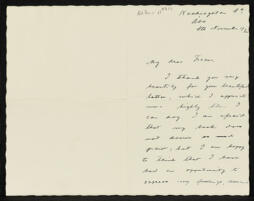 Washington D.C.
8th November
My dear
I thank you very
heartily for your beautiful
letter, which I appreciate
more highly than I
can say. I am afraid
that my book does
not deserve so much
praise, but I am happy
to think that I have
had an opportunity to
express my feelings